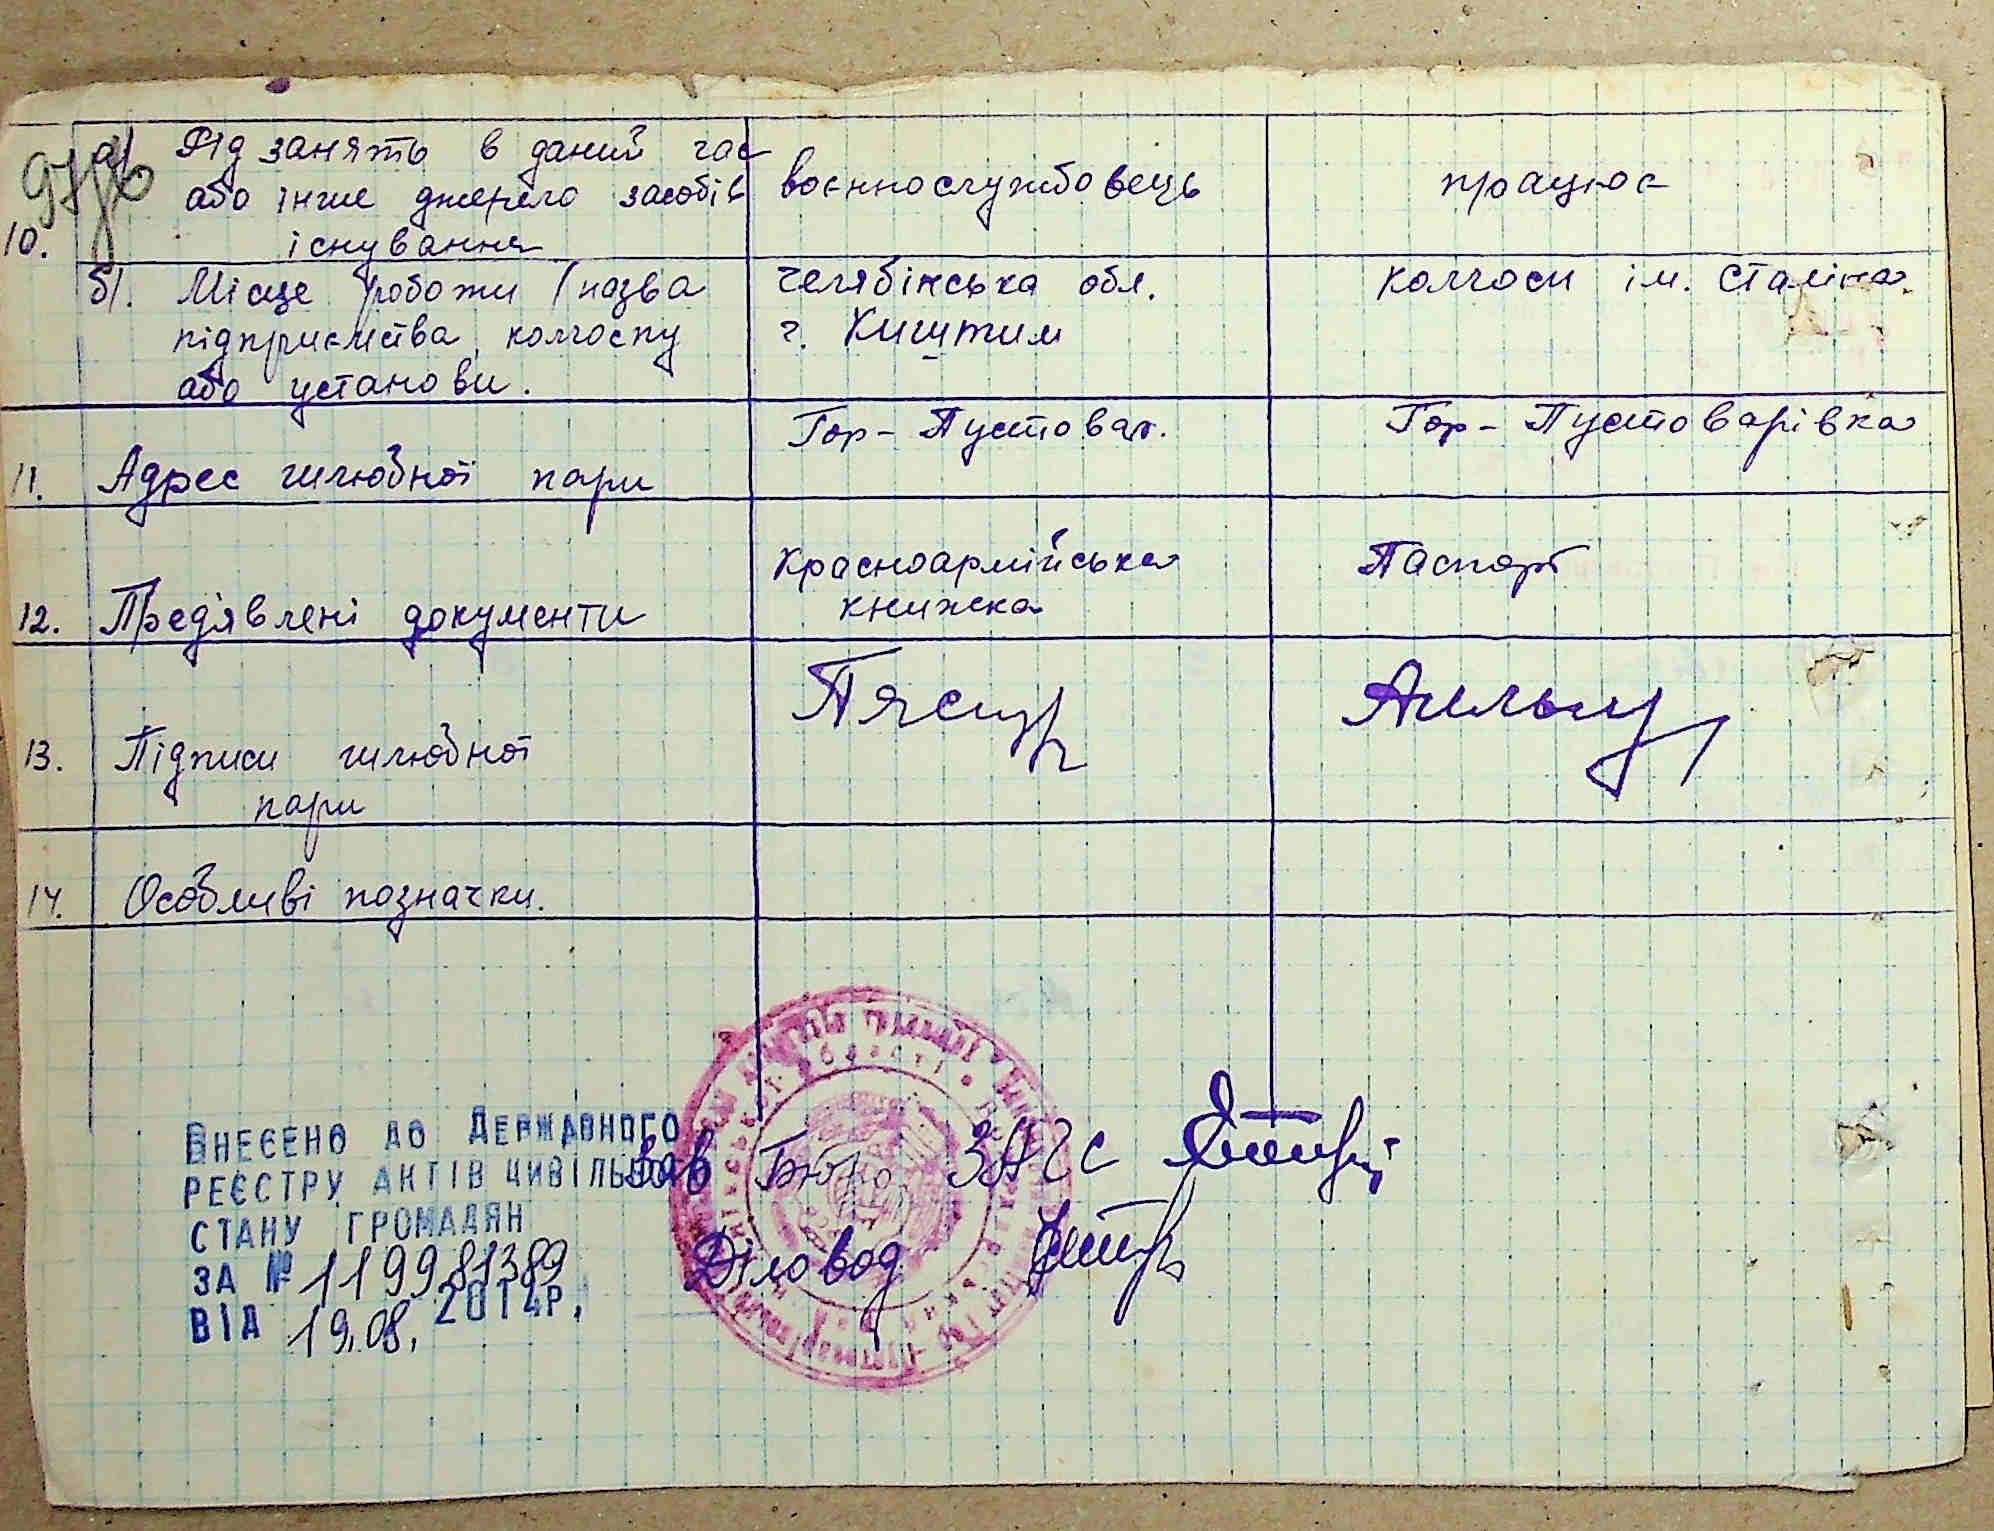 10. а). Рід занять в даний час
або інше джерело засобів
існування
воєннослужбовець
працює
б). Місце роботи (назва
підприємства, колгоспу
або установи.
Челябінська обл.
г. Киштим
колгоси ім. Сталіна.
11. Адрес шлюбної пари
Гор-Пустовар.
Гор-Пустоварівка
12. Предявлені документи
Красноармійська
книжка
Паспорт
13. Підписи шлюбної
пари
14. Особливі позначки.
Зав Бюро ЗАГС
Діловод
ВНЕСЕНО ДО ДЕРЖАВНОГО
РЕЄСТРУ АКТІВ ЦИВІЛЬНОГО
СТАНУ ГРОМАДЯН
ЗА № 119981389
ВІД 19.08. 2014Р.